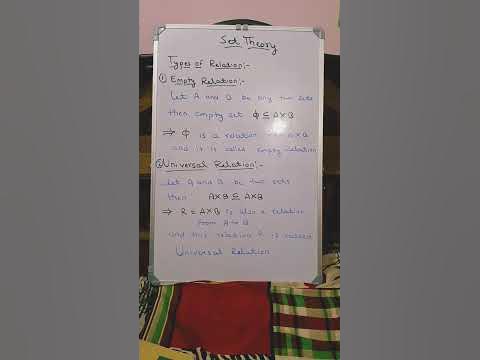 Set Theory
Types of Relation:-
① Empty Relation:-
Let A and B be any two sets
then empty set ϕ ⊆ A×B
⇒ ϕ is a relation from A×B
and it is called Empty relation
② Universal Relation:-
Let A and B be two sets
then A×B ⊆ A×B
⇒ R = A×B is also a relation
from A to B
and this relation R is called
Universal Relation